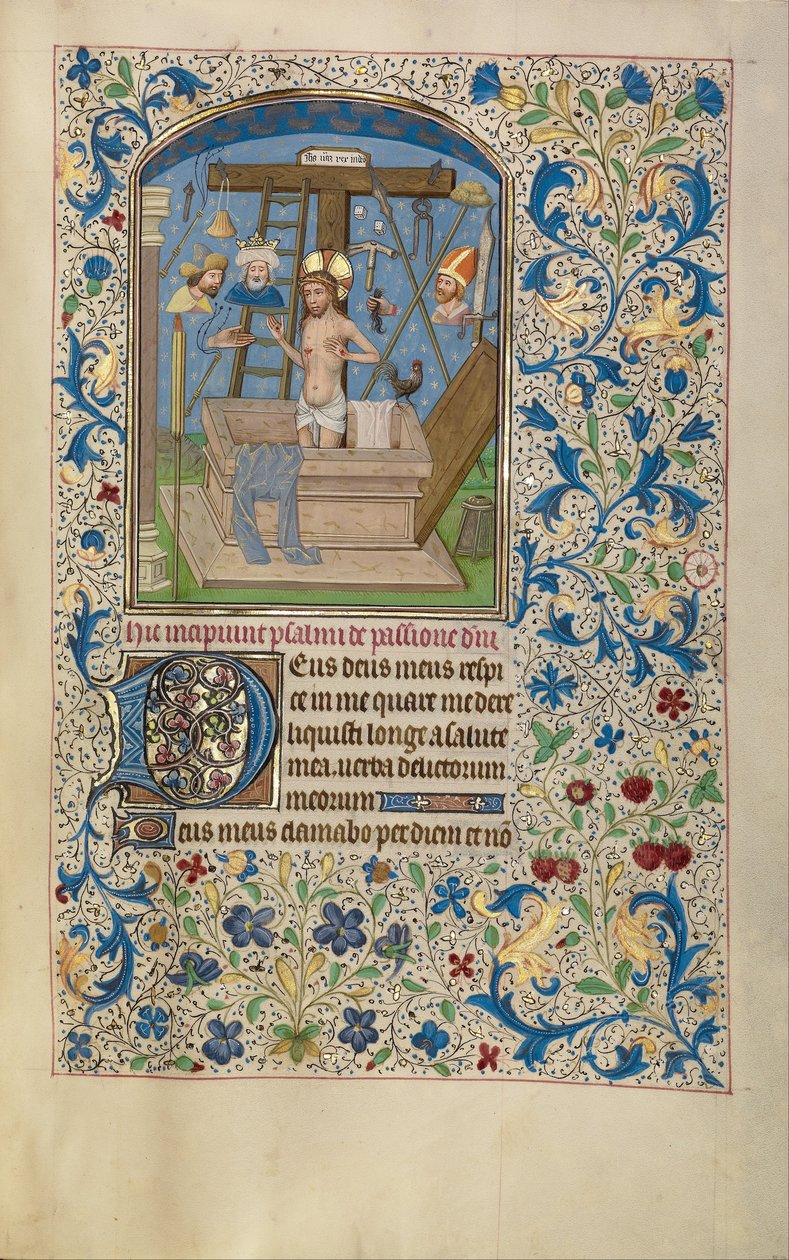 Ihs naz rex iudeo
hic incipiunt psalmi de passione dni
Deus deus meus respi
ce in me quare me dere
liquisti longe a salute
mea. uerba delictorum
meorum
Deus meus clamabo per diem et nō